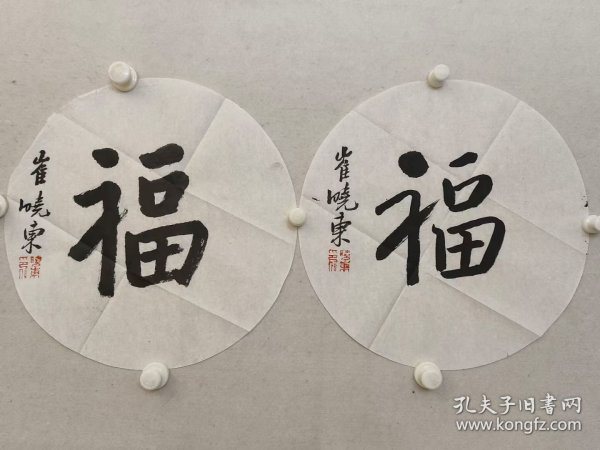 福
崔曉東
福
崔曉東
孔夫子旧書网
www.kongfz.com